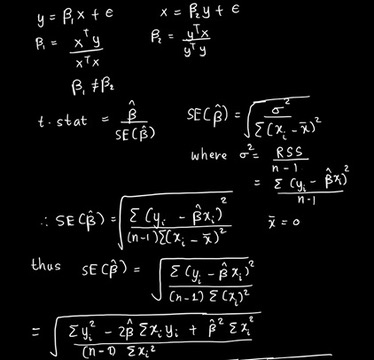 y = β₁x + ϵ    x = β₂y + ϵ
β₁ = xᵀy / xᵀx    β₂ = yᵀx / yᵀy
β₁ ≠ β₂
t.stat = β̂ / SE(β̂)    SE(β̂) = √(σ² / Σ(xᵢ - x̄)²)
where σ² = RSS / n-1
= Σ(yᵢ - β̂xᵢ)² / n-1
∴ SE(β̂) = √(Σ(yᵢ - β̂xᵢ)² / (n-1)Σ(xᵢ - x̄)²)    x̄ = 0
thus SE(β̂) = √(Σ(yᵢ - β̂xᵢ)² / (n-1) Σ(xᵢ)²)
= √(Σyᵢ² - 2β̂Σxᵢyᵢ + β̂²Σxᵢ² / (n-1) Σxᵢ²)